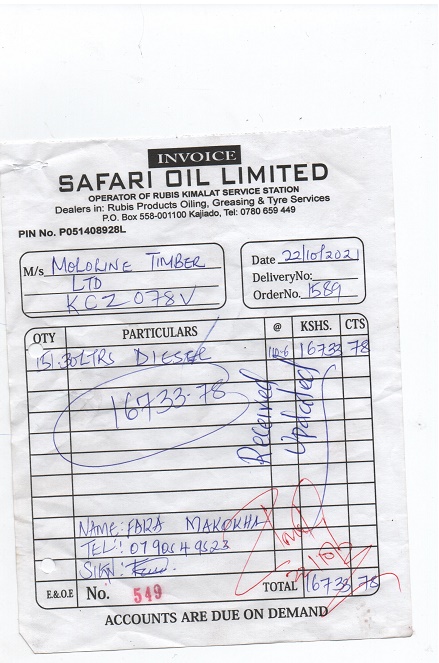 INVOICE
SAFARI OIL LIMITED
OPERATOR OF RUBIS KIMALAT SERVICE STATION
Dealers in: Rubis Products Oiling, Greasing & Tyre Services
P.O. Box 558-001100 Kajiado, Tel: 0780 659 449
PIN No. P051408928L
M/s MOLORINE TIMBER
LTD
KCZ 078V
Date 22/10/2021
DeliveryNo:
OrderNo. 1589
QTY PARTICULARS @ KSHS. CTS
151.30LTRS DIESEL 110.6 16733 78
16733-78
Received
Updated
NAME: FARA MAKOKHA
TEL: 0790549523
SIGN:
E.&O.E No. 549 TOTAL 16733 78
ACCOUNTS ARE DUE ON DEMAND